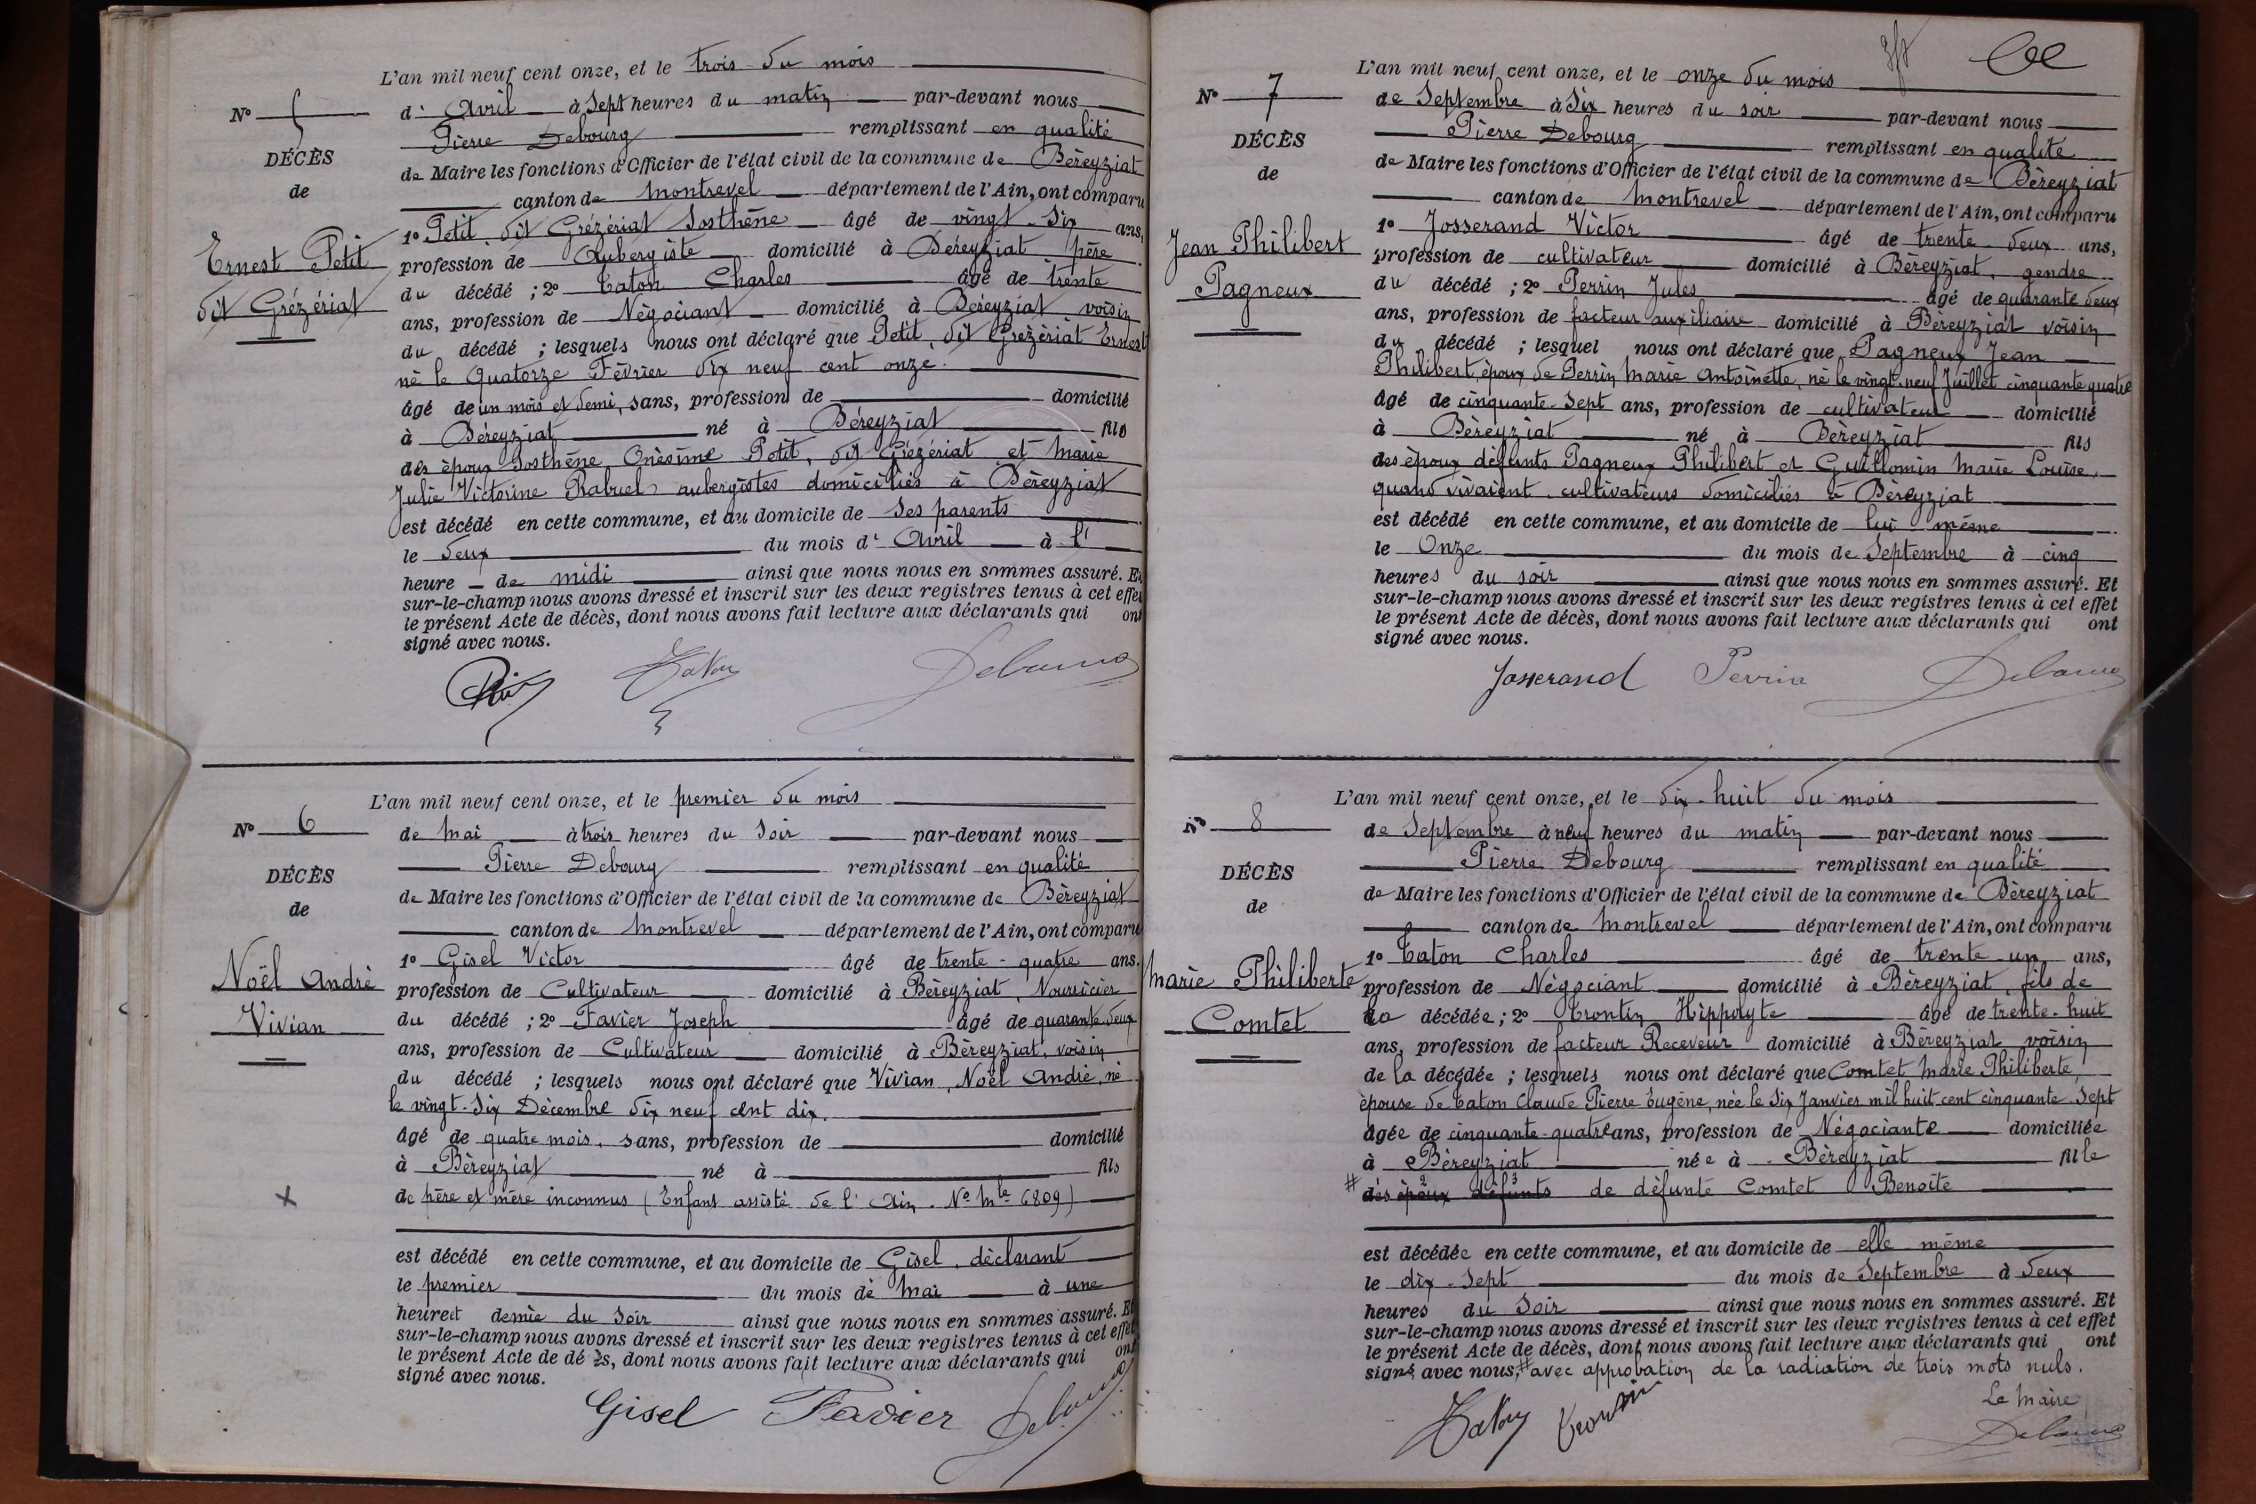 L'an mil neuf cent onze, et le trois du mois
N° 5
d' Avril à Sept heures du matin par-devant nous
Pierre Debourg remplissant en qualité
DÉCÈS
de
de Maire les fonctions d'Officier de l'état civil de la commune de Béreyziat
canton de Montrevel département de l'Ain, ont comparu
Ernest Petit
dit Grézériat
1° Petit dit Grézériat Sosthène âgé de vingt-six ans,
profession de Aubergiste domicilié à Béreyziat père
du décédé ; 2° Caton Charles âgé de trente
ans, profession de Négociant domicilié à Béreyziat voisin
du décédé ; lesquels nous ont déclaré que Petit, dit Grézériat Ernest
né le Quatorze Février dix neuf cent onze.
âgé de un mois et demi, sans, profession de domicilié
à Béreyziat né à Béreyziat fils
des époux Sosthène Onésime Petit, dit Grézériat et Marie
Julie Victorine Rabuel aubergistes domiciliés à Béreyziat
est décédé en cette commune, et au domicile de ses parents
le deux du mois d' Avril à l'
heure de midi ainsi que nous nous en sommes assuré. Et
sur-le-champ nous avons dressé et inscrit sur les deux registres tenus à cet effet
le présent Acte de décès, dont nous avons fait lecture aux déclarants qui ont
signé avec nous.
Caton Debourg
L'an mil neuf cent onze, et le premier du mois
N° 6
de Mai à trois heures du soir par-devant nous
Pierre Debourg remplissant en qualité
DÉCÈS
de
de Maire les fonctions d'Officier de l'état civil de la commune de Béreyziat
canton de Montrevel département de l'Ain, ont comparu
Noël André
Vivian
1° Gisel Victor âgé de trente-quatre ans.
profession de Cultivateur domicilié à Béreyziat, Nourricier
du décédé ; 2° Favier Joseph âgé de quarante deux
ans, profession de Cultivateur domicilié à Béreyziat, voisin
du décédé ; lesquels nous ont déclaré que Vivian, Noël André, né
le vingt-six Décembre dix neuf cent dix.
âgé de quatre mois, sans, profession de domicilié
à Béreyziat né à fils
de père et mère inconnus (Enfant assisté de l'Ain. N° Mle 6809)
est décédé en cette commune, et au domicile de Gisel, déclarant
le premier du mois de Mai à une
heure et demie du soir ainsi que nous nous en sommes assuré. Et
sur-le-champ nous avons dressé et inscrit sur les deux registres tenus à cet effet
le présent Acte de décès, dont nous avons fait lecture aux déclarants qui ont
signé avec nous.
Gisel Favier Debourg
L'an mil neuf cent onze, et le onze du mois
N° 7
de Septembre à Six heures du soir par-devant nous
Pierre Debourg remplissant en qualité
DÉCÈS
de
de Maire les fonctions d'Officier de l'état civil de la commune de Béreyziat
canton de Montrevel département de l'Ain, ont comparu
Jean Philibert
Pagneux
1° Josserand Victor âgé de trente deux ans,
profession de cultivateur domicilié à Béreyziat, gendre
du décédé ; 2° Perrin Jules âgé de quarante deux
ans, profession de facteur auxiliaire domicilié à Béreyziat voisin
du décédé ; lesquel nous ont déclaré que Pagneux Jean
Philibert, époux de Perrin Marie Antoinette, né le vingt-neuf Juillet cinquante quatre
âgé de cinquante-sept ans, profession de cultivateur domicilié
à Béreyziat né à Béreyziat fils
des époux défunts Pagneux Philibert et Guillomin Marie Louise,
quand vivaient cultivateurs domiciliés à Béreyziat
est décédé en cette commune, et au domicile de lui même
le Onze du mois de Septembre à cinq
heures du soir ainsi que nous nous en sommes assuré. Et
sur-le-champ nous avons dressé et inscrit sur les deux registres tenus à cet effet
le présent Acte de décès, dont nous avons fait lecture aux déclarants qui ont
signé avec nous.
Josserand Perrin Debourg
L'an mil neuf cent onze, et le dix-huit du mois
N° 8
de Septembre à neuf heures du matin par-devant nous
Pierre Debourg remplissant en qualité
DÉCÈS
de
de Maire les fonctions d'Officier de l'état civil de la commune de Béreyziat
canton de Montrevel département de l'Ain, ont comparu
Marie Philiberte
Comtet
1° Caton Charles âgé de trente-un ans,
profession de Négociant domicilié à Béreyziat, fils de
la décédée ; 2° Trontin Hippolyte âgé de trente-huit
ans, profession de facteur Receveur domicilié à Béreyziat voisin
de la décédée ; lesquels nous ont déclaré que Comtet Marie Philiberte,
épouse de Caton Claude Pierre Eugène, née le Six Janvier mil huit cent cinquante sept
âgée de cinquante-quatre ans, profession de Négociante domiciliée
à Béreyziat née à Béreyziat fille
# des époux défunts de défunte Comtet Benoîte
est décédée en cette commune, et au domicile de elle même
le dix-sept du mois de Septembre à deux
heures du soir ainsi que nous nous en sommes assuré. Et
sur-le-champ nous avons dressé et inscrit sur les deux registres tenus à cet effet
le présent Acte de décès, dont nous avons fait lecture aux déclarants qui ont
signé avec nous, # avec approbation de la radiation de trois mots nuls.
Le Maire
Caton Trontin Debourg